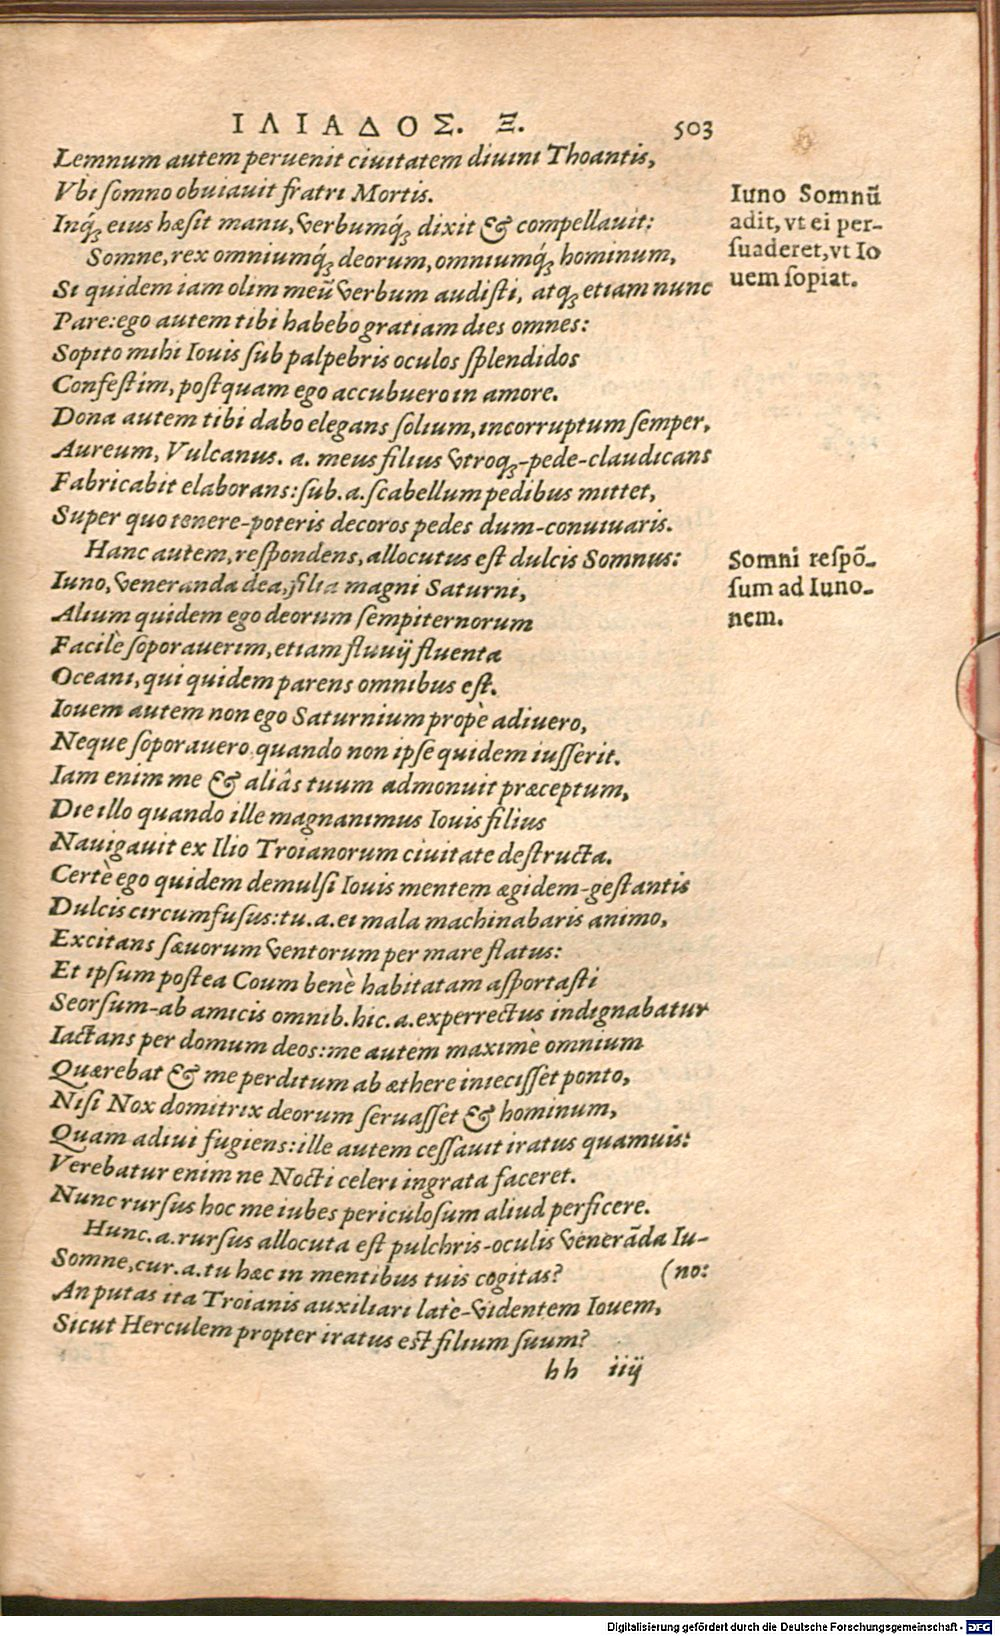 ΙΛΙΑΔΟΣ. Ξ. 503
Lemnum autem peruenit ciuitatem diuini Thoantis,
Vbi ſomno obuiauit fratri Mortis.
Inq́ꝫ eius hæſit manu, verbumq́ꝫ dixit & compellauit:
Somne, rex omniumq́ꝫ deorum, omniumq́ꝫ hominum,
Si quidem iam olim meũ verbum audiſti, atqꝫ etiam nunc
Pare: ego autem tibi habebo gratiam dies omnes:
Sopito mihi Iouis ſub palpebris oculos ſplendidos
Confeſtim, poſtquam ego accubuero in amore.
Dona autem tibi dabo elegans ſolium, incorruptum ſemper,
Aureum, Vulcanus. a. meus filius vtroqꝫ-pede-claudicans
Fabricabit elaborans: ſub. a. ſcabellum pedibus mittet,
Super quo tenere-poteris decoros pedes dum-conuiuaris.
Hanc autem, reſpondens, allocutus eſt dulcis Somnus:
Iuno, veneranda dea, filia magni Saturni,
Alium quidem ego deorum ſempiternorum
Facilè ſoporauerim, etiam fluuij fluenta
Oceani, qui quidem parens omnibus eſt.
Iouem autem non ego Saturnium propè adiuero,
Neque ſoporauero quando non ipſe quidem iuſſerit.
Iam enim me & aliâs tuum admonuit præceptum,
Die illo quando ille magnanimus Iouis filius
Nauigauit ex Ilio Troianorum ciuitate deſtructa.
Certè ego quidem demulſi Iouis mentem ægidem-geſtantis
Dulcis circumfuſus: tu. a. ei mala machinabaris animo,
Excitans ſæuorum ventorum per mare flatus:
Et ipſum poſtea Coum benè habitatam aſportaſti
Seorſum-ab amicis omnib. hic. a. experrectus indignabatur
Iactans per domum deos: me autem maximè omnium
Quærebat & me perditum ab æthere inieciſſet ponto,
Niſi Nox domitrix deorum ſeruaſſet & hominum,
Quam adiui fugiens: ille autem ceſſauit iratus quamuis:
Verebatur enim ne Nocti celeri ingrata faceret.
Nunc rurſus hoc me iubes periculoſum aliud perficere.
Hunc. a. rurſus allocuta eſt pulchris-oculis venerãda Iu-
Somne, cur. a. tu hæc in mentibus tuis cogitas? (no:
An putas ita Troianis auxiliari latè-videntem Iouem,
Sicut Herculem propter iratus eſt filium ſuum?
hh iiij
Iuno Somnũ
adit, vt ei per-
ſuaderet, vt Io
uem ſopiat.
Somni reſpõ-
ſum ad Iuno-
nem.
Digitalisierung gefördert durch die Deutsche Forschungsgemeinschaft - DFG